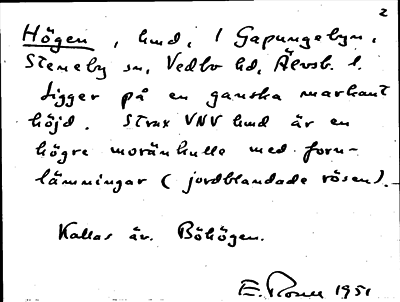 2
Högen, hmd, i Gapungebyn,
Steneby sn, Vedbo hd, Älvsb. l.
Ligger på en ganska markant
höjd. Strax VNV hmd är en
högre moränkulle med forn-
lämningar (jordblandade rösen).
Kallas äv. Böhögen.
E. 1951